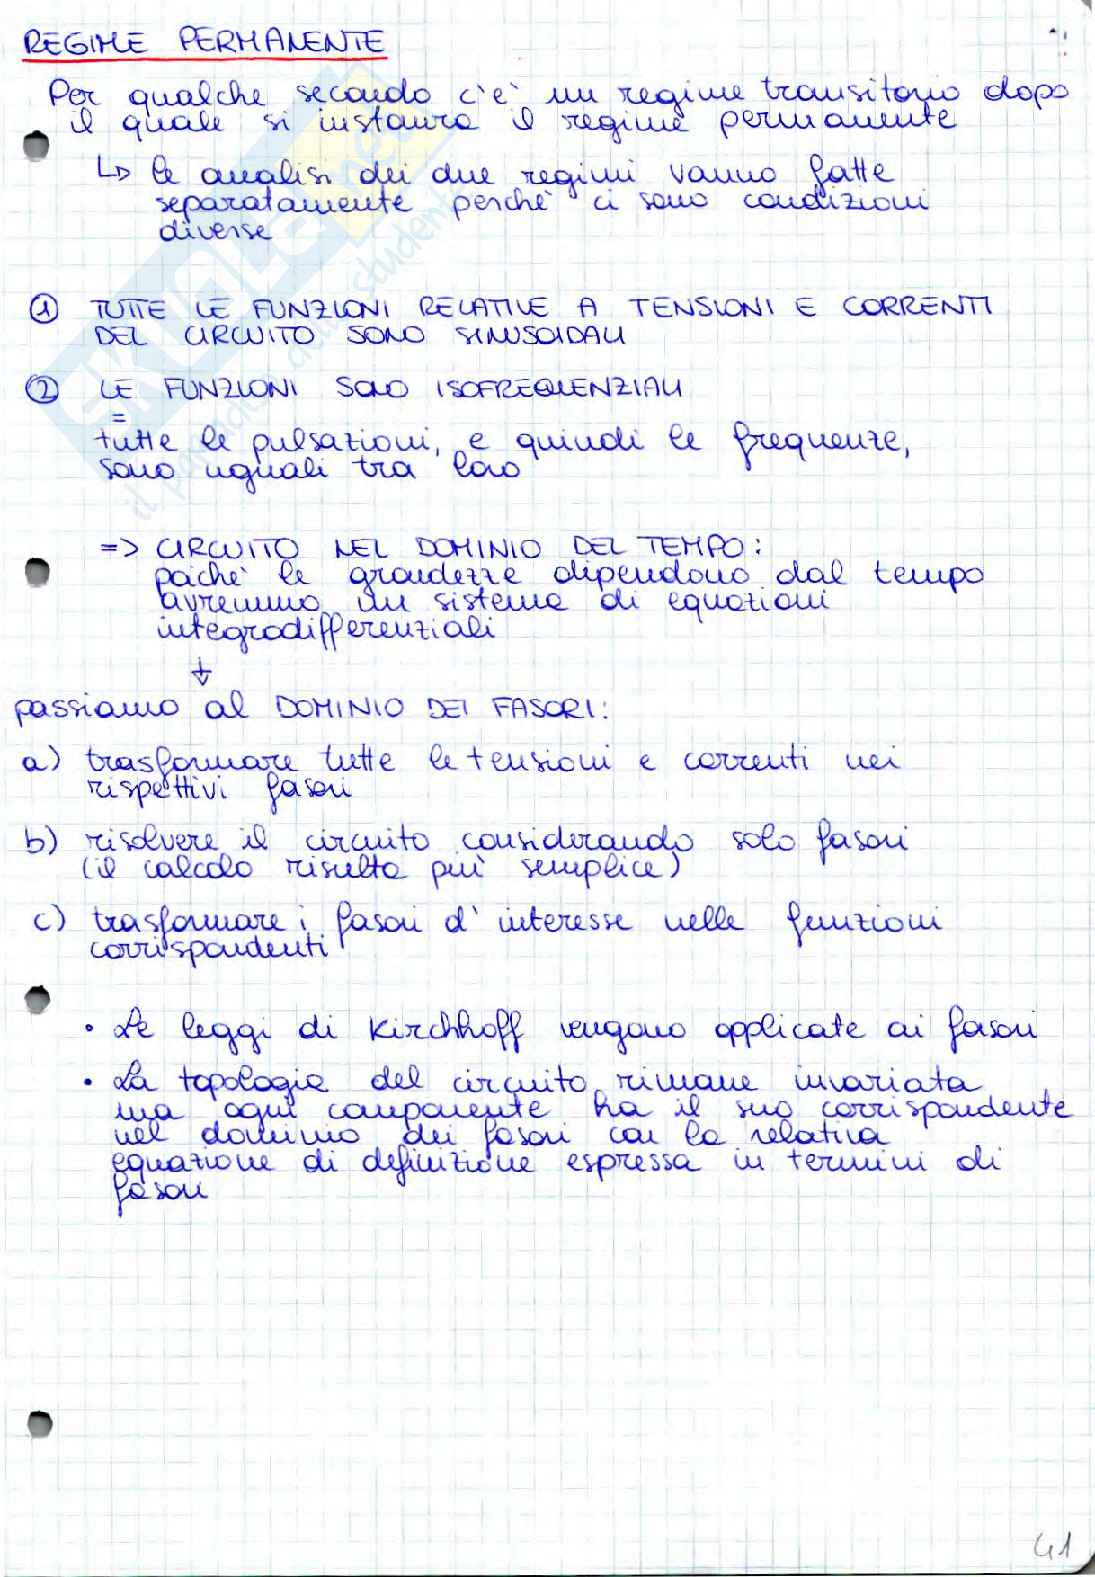 REGIME PERMANENTE
Per qualche secondo c'e' un regime transitorio dopo
il quale si instaura il regime permanente
↳ le analisi dei due regimi vanno fatte
separatamente perche' ci sono condizioni
diverse
① TUTTE LE FUNZIONI RELATIVE A TENSIONI E CORRENTI
DEL CIRCUITO SONO SINUSOIDALI
② LE FUNZIONI SONO ISOFREQUENZIALI
=
tutte le pulsazioni, e quindi le frequenze,
sono uguali tra loro
=> CIRCUITO NEL DOMINIO DEL TEMPO:
poiche' le grandezze dipendono dal tempo
avremmo un sistema di equazioni
integrodifferenziali
↓
passiamo al DOMINIO DEI FASORI:
a) trasformare tutte le tensioni e correnti nei
rispettivi fasori
b) risolvere il circuito considerando solo fasori
(il calcolo risulta piu' semplice)
c) trasformare i fasori d'interesse nelle funzioni
corrispondenti
• Le leggi di Kirchhoff vengono applicate ai fasori
• La topologia del circuito rimane invariata
ma ogni componente ha il suo corrispondente
nel dominio dei fasori con la relativa
equazione di definizione espressa in termini di
fasori
41
SKUOLA.net
il portale degli studenti